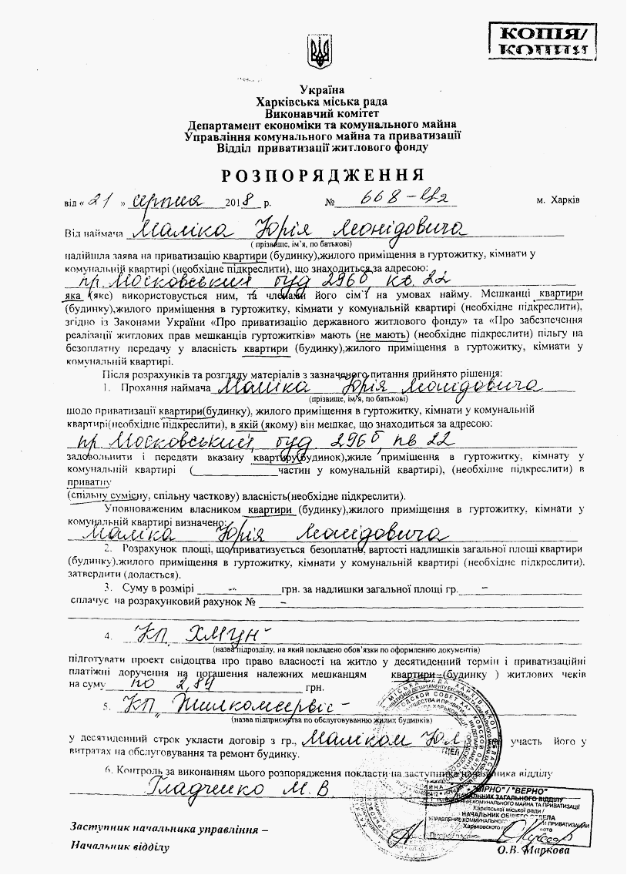 КОПІЯ/
КОПИЯ
Україна
Харківська міська рада
Виконавчий комітет
Департамент економіки та комунального майна
Управління комунального майна та приватизації
Відділ приватизації житлового фонду
РОЗПОРЯДЖЕННЯ
від « 21 » серпня 2018 р. № 668-Ц2 м. Харків
Від наймача Маліка Юрія Леонідовича
( прізвище, ім'я, по батькові)
надійшла заява на приватизацію квартири (будинку),жилого приміщення в гуртожитку, кімнати у
комунальній квартирі (необхідне підкреслити), що знаходиться за адресою:
пр. Московський буд 296б кв. 22
яка (яке) використовується ним, та членами його сім'ї на умовах найму. Мешканці квартири
(будинку),жилого приміщення в гуртожитку, кімнати у комунальній квартирі (необхідне підкреслити),
згідно із Законами України «Про приватизацію державного житлового фонду» та «Про забезпечення
реалізації житлових прав мешканців гуртожитків» мають (не мають) (необхідне підкреслити) пільгу на
безоплатну передачу у власність квартири (будинку),жилого приміщення в гуртожитку, кімнати у
комунальній квартирі.
Після розрахунків та розгляду матеріалів з зазначеного питання прийнято рішення:
1. Прохання наймача Маліка Юрія Леонідовича
(прізвище, ім'я, по батькові)
щодо приватизації квартири(будинку), жилого приміщення в гуртожитку, кімнати у комунальній
квартирі(необхідне підкреслити), в якій (якому) він мешкає, що знаходиться за адресою:
пр. Московський, буд 296б кв 22
задовольнити і передати вказану квартиру(будинок),жиле приміщення в гуртожитку, кімнату у
комунальній квартирі (____________частин у комунальній квартирі), (необхідне підкреслити) в
приватну
(спільну сумісну, спільну часткову) власність(необхідне підкреслити).
Уповноваженим власником квартири (будинку),жилого приміщення в гуртожитку, кімнати у
комунальній квартирі визначено:
Маліка Юрія Леонідовича
2. Розрахунок площі, що приватизується безоплатно, вартості надлишків загальної площі квартири
(будинку),жилого приміщення в гуртожитку, кімнати у комунальній квартирі (необхідне підкреслити),
затвердити (додається).
3. Суму в розмірі – грн. за надлишки загальної площі гр. –
сплачує на розрахунковий рахунок № –
4. КП ХМУН
(назва підрозділу, на який покладено обов'язки по оформленню документів)
підготувати проект свідоцтва про право власності на житло у десятиденний термін і приватизаційні
платіжні доручення на погашення належних мешканцям квартири (будинку ) житлових чеків
на суму по 2,84 грн.
5. КП „Жилкомсервіс"
(назва підприємства по обслуговуванню жилих будинків)
у десятиденний строк укласти договір з гр., Маліком Ю.Л. участь його у
витратах на обслуговування та ремонт будинку.
6. Контроль за виконанням цього розпорядження покласти на заступника начальника відділу
Гладченко М. В
"ВІРНО" / "ВЕРНО"
НАЧАЛЬНИК ЗАГАЛЬНОГО ВІДДІЛУ
Харківської міської ради /
НАЧАЛЬНИК ОБЩЕГО ОТДЕЛА
Заступник начальника управління –
Начальник відділу
О.В. Маркова